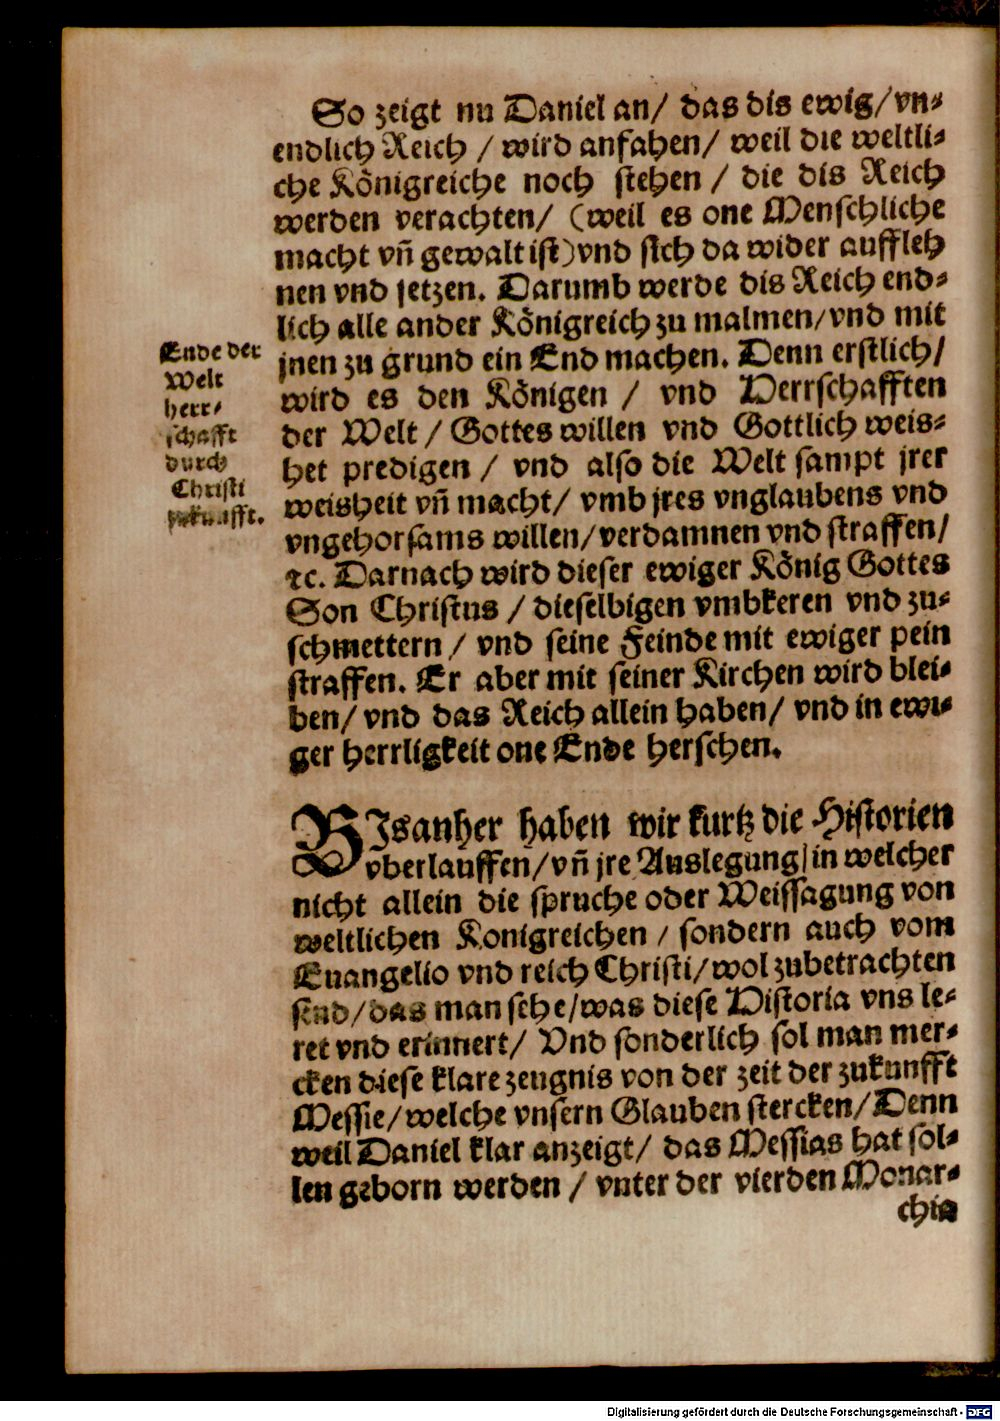 So zeigt nu Daniel an/ das dis ewig/vn-
endlich Reich / wird anfahen/ weil die weltli-
che Königreiche noch stehen / die dis Reich
werden verachten/ (weil es one Menschliche
macht vñ gewalt ist)vnd sich da wider auffleh
nen vnd setzen. Darumb werde dis Reich end-
lich alle ander Königreich zu malmen/vnd mit
jnen zu grund ein End machen. Denn erstlich/
wird es den Königen / vnd Herrschafften
der Welt / Gottes willen vnd Gottlich weis-
het predigen / vnd also die Welt sampt jrer
weisheit vñ macht/ vmb jres vnglaubens vnd
vngehorsams willen/verdamnen vnd straffen/
ꝛc. Darnach wird dieser ewiger König Gottes
Son Christus / dieselbigen vmbkeren vnd zu-
schmettern / vnd seine Feinde mit ewiger pein
straffen. Er aber mit seiner Kirchen wird blei-
ben/ vnd das Reich allein haben/ vnd in ewi-
ger herrligkeit one Ende herschen.
Ende der
Welt
herr-
schafft
durch
Christi
zukunfft.
BIsanher haben wir kurtz die Historien
vberlauffen/vñ jre Auslegung/in welcher
nicht allein die spruche oder Weissagung von
weltlichen Konigreichen / sondern auch vom
Euangelio vnd reich Christi/wol zubetrachten
sind/das man sehe/was diese Historia vns le-
ret vnd erinnert/ Vnd sonderlich sol man mer-
cken diese klare zeugnis von der zeit der zukunfft
Messie/welche vnsern Glauben stercken/Denn
weil Daniel klar anzeigt/ das Messias hat sol-
len geborn werden / vnter der vierden Monar-
chia
Digitalisierung gefördert durch die Deutsche Forschungsgemeinschaft - DFG